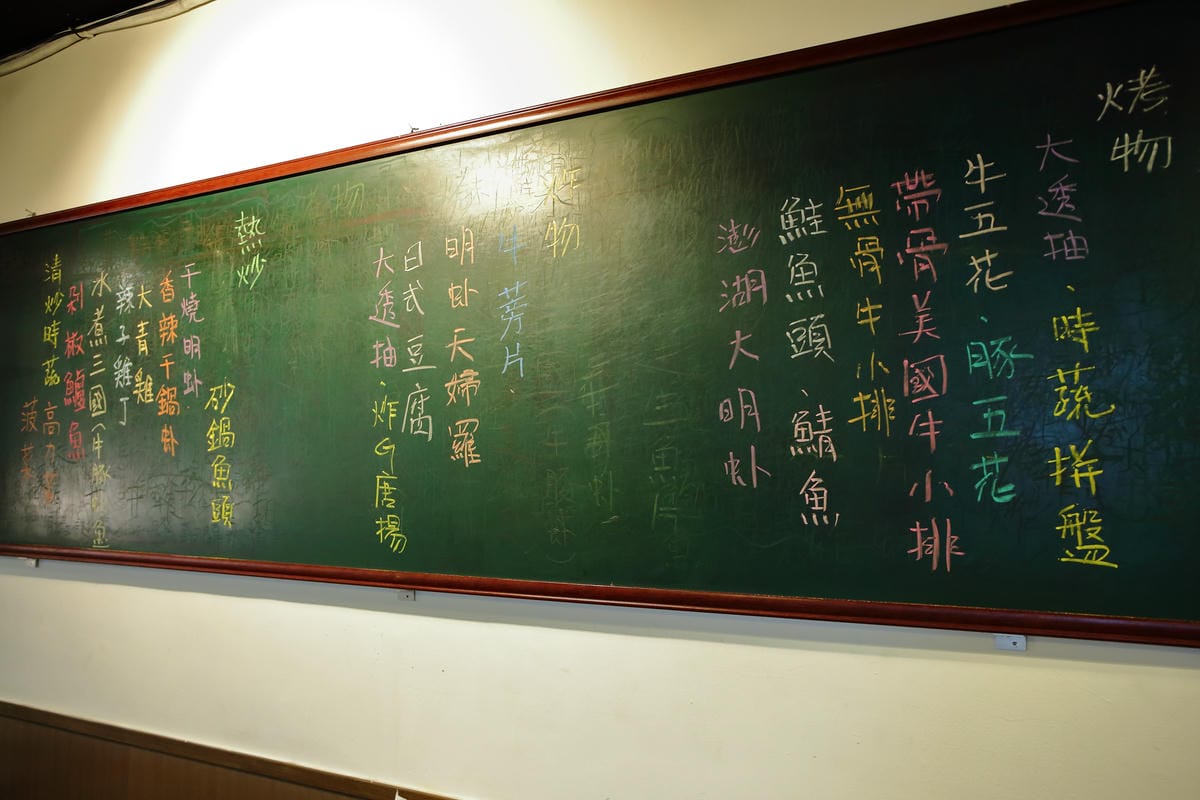 烤物
大透抽、時蔬拼盤
牛五花、豚五花
帶骨美國牛小排
無骨牛小排
鮭魚頭、鯖魚
澎湖大明虾
炸物
牛蒡片、
明虾天婦羅
日式豆腐
大透抽、炸G唐揚
熱炒
砂鍋魚頭
干燒明虾、
香辣干鍋虾
大青雞
辣子雞丁
水煮三國(牛豚
剁椒鱸魚
清炒時蔬 高力菜
菠菜